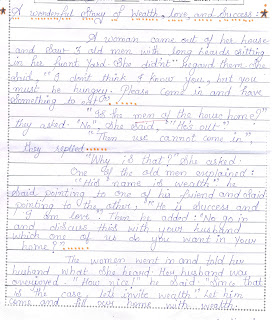 A wonderful Story of Wealth, Love, and Success.
A woman came out of her house
and saw 3 old men with long beards sitting
in her front yard. She didn't regard them. She
said, "I don't think I know you, but you
must be hungry. Please come in and have
something to eat".
"Is the men of the house home?"
they asked. "No", She said, "He's out".
"Then we cannot come in",
they replied
"Why is that?" she asked.
One of the old men explained:
"His name is wealth" he
said pointing to one of his friend and said
pointing to the other, "He is Success and
I am love". Then he added: "No go in
and discuss this with your husband
which one of us do you want in your
home?"
The women went in and told her
husband what she heard. Her husband was
overjoyed. "How nice!" he said. "Since that
is the case, lets invite wealth. Let him
come and fill our home with wealth